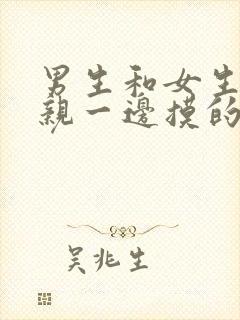 男生和女生
親一邊摸的
吴兆生